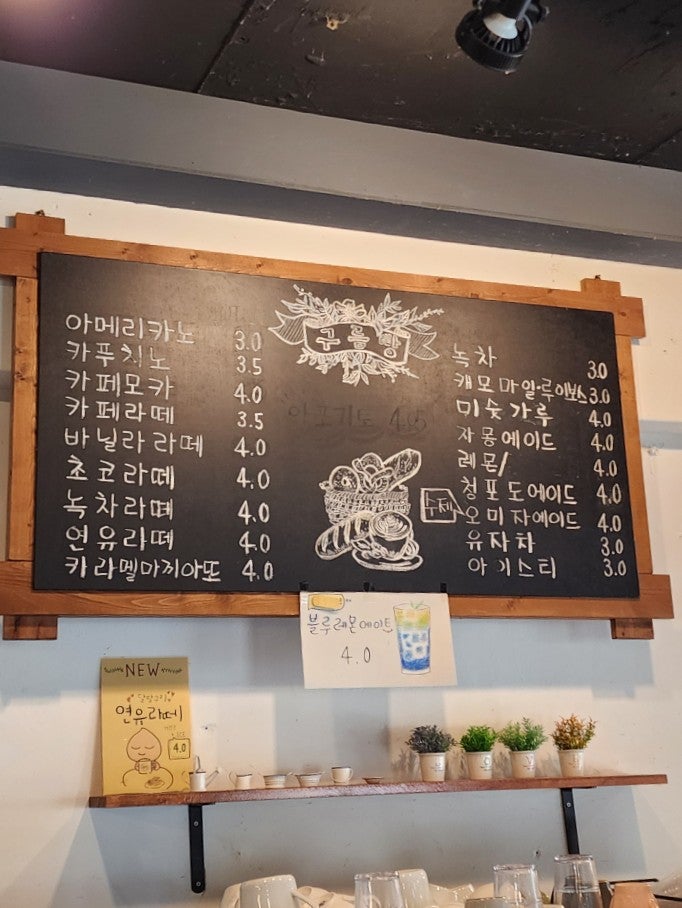 구름빵
아메리카노 3.0
카푸치노 3.5
카페모카 4.0
카페라떼 3.5
바닐라 라떼 4.0
초코라떼 4.0
녹차라떼 4.0
연유라떼 4.0
카라멜마끼아또 4.0
녹차 3.0
캐모마일·루이보스 3.0
미숫가루 4.0
자몽에이드 4.0
레몬/ 4.0
청포도에이드 4.0
수제 오미자에이드 4.0
유자차 3.0
아이스티 3.0
블루레몬에이드
4.0
NEW
달달구리
연유라떼
4.0